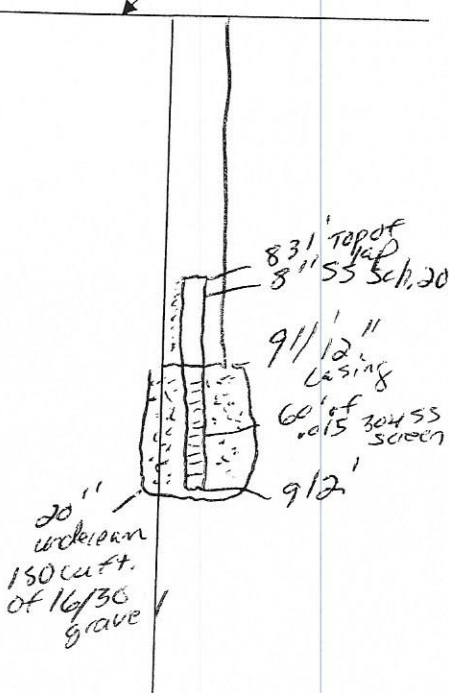 831' Top of
lap
8" SS Sch. 20
911' 12"
casing
60' of
.015 304 SS
screen
912'
20"
underream
150 cu ft.
of 16/30
gravel